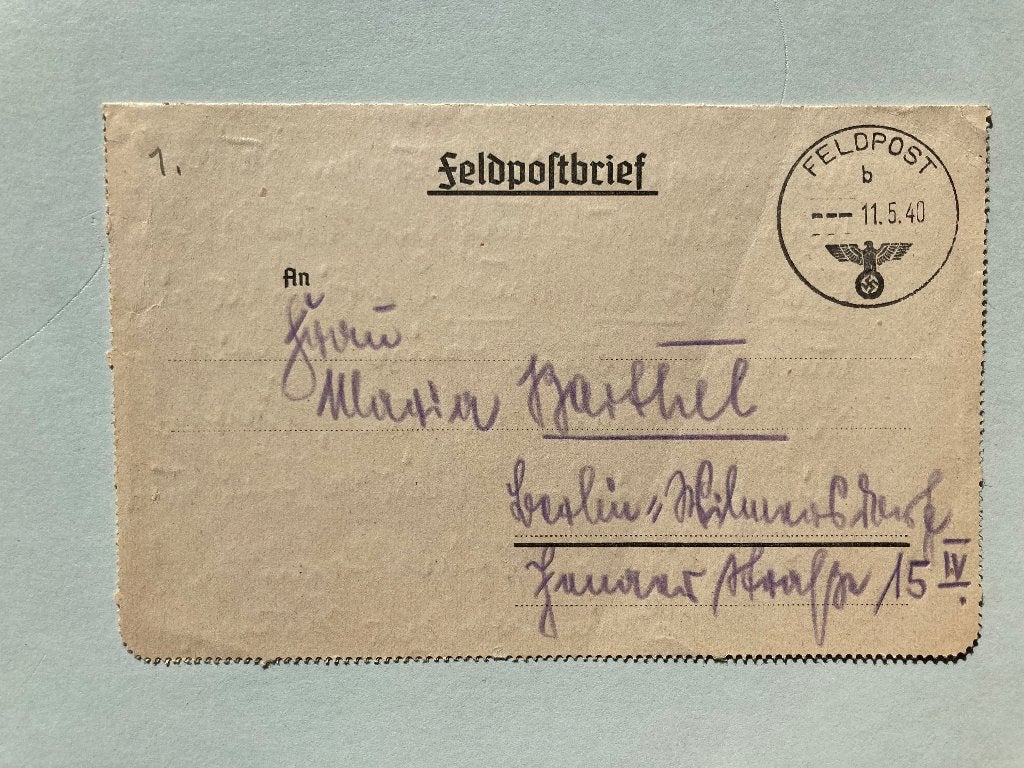 1.
Feldpostbrief
FELDPOST
b
--- 11.5.40
An
Frau
Maria Barthel
Berlin-Wilmersdorf
Jenaer Straße 15 IV.